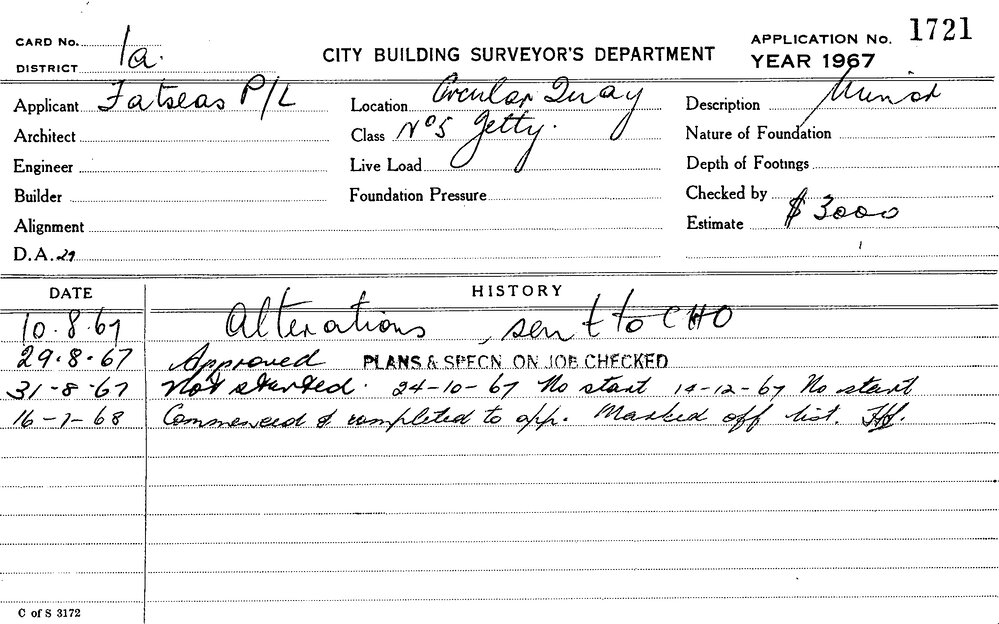 CARD No.
DISTRICT 1a.
CITY BUILDING SURVEYOR'S DEPARTMENT
APPLICATION No. 1721
YEAR 1967
Applicant Fatseas P/L
Location Circular Quay
Description Minor
Architect
Class No 5 Jetty.
Nature of Foundation
Engineer
Live Load
Depth of Footings
Builder
Foundation Pressure
Checked by
Alignment
Estimate $ 3000
D.A. 29
DATE HISTORY
10.8.67 Alterations, sent to CHO
29.8.67 Approved PLANS & SPECN ON JOB CHECKED
31-8-67 Not started. 24-10-67 No start 14-12-67 No start
16-1-68 Commenced & completed to app. Marked off list.
C of S 3172